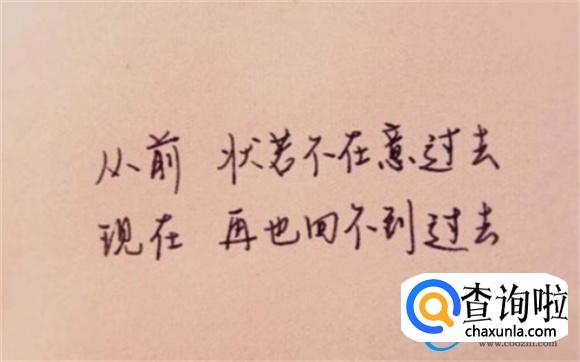 从前 状若不在意过去
现在 再也回不到过去
查询啦
chaxunla.com